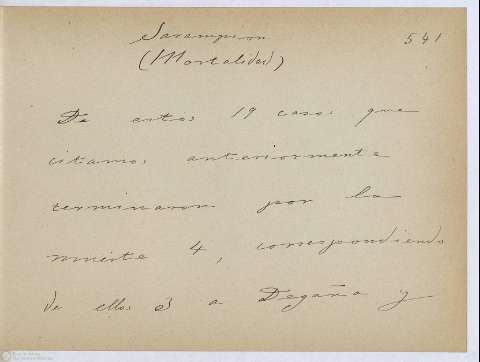 Sarampion
541
(Mortalidad)
De estos 19 casos que
citamos anteriormente
terminaron por la
muerte 4, correspondiendo
de ellos 3 a Degaña y